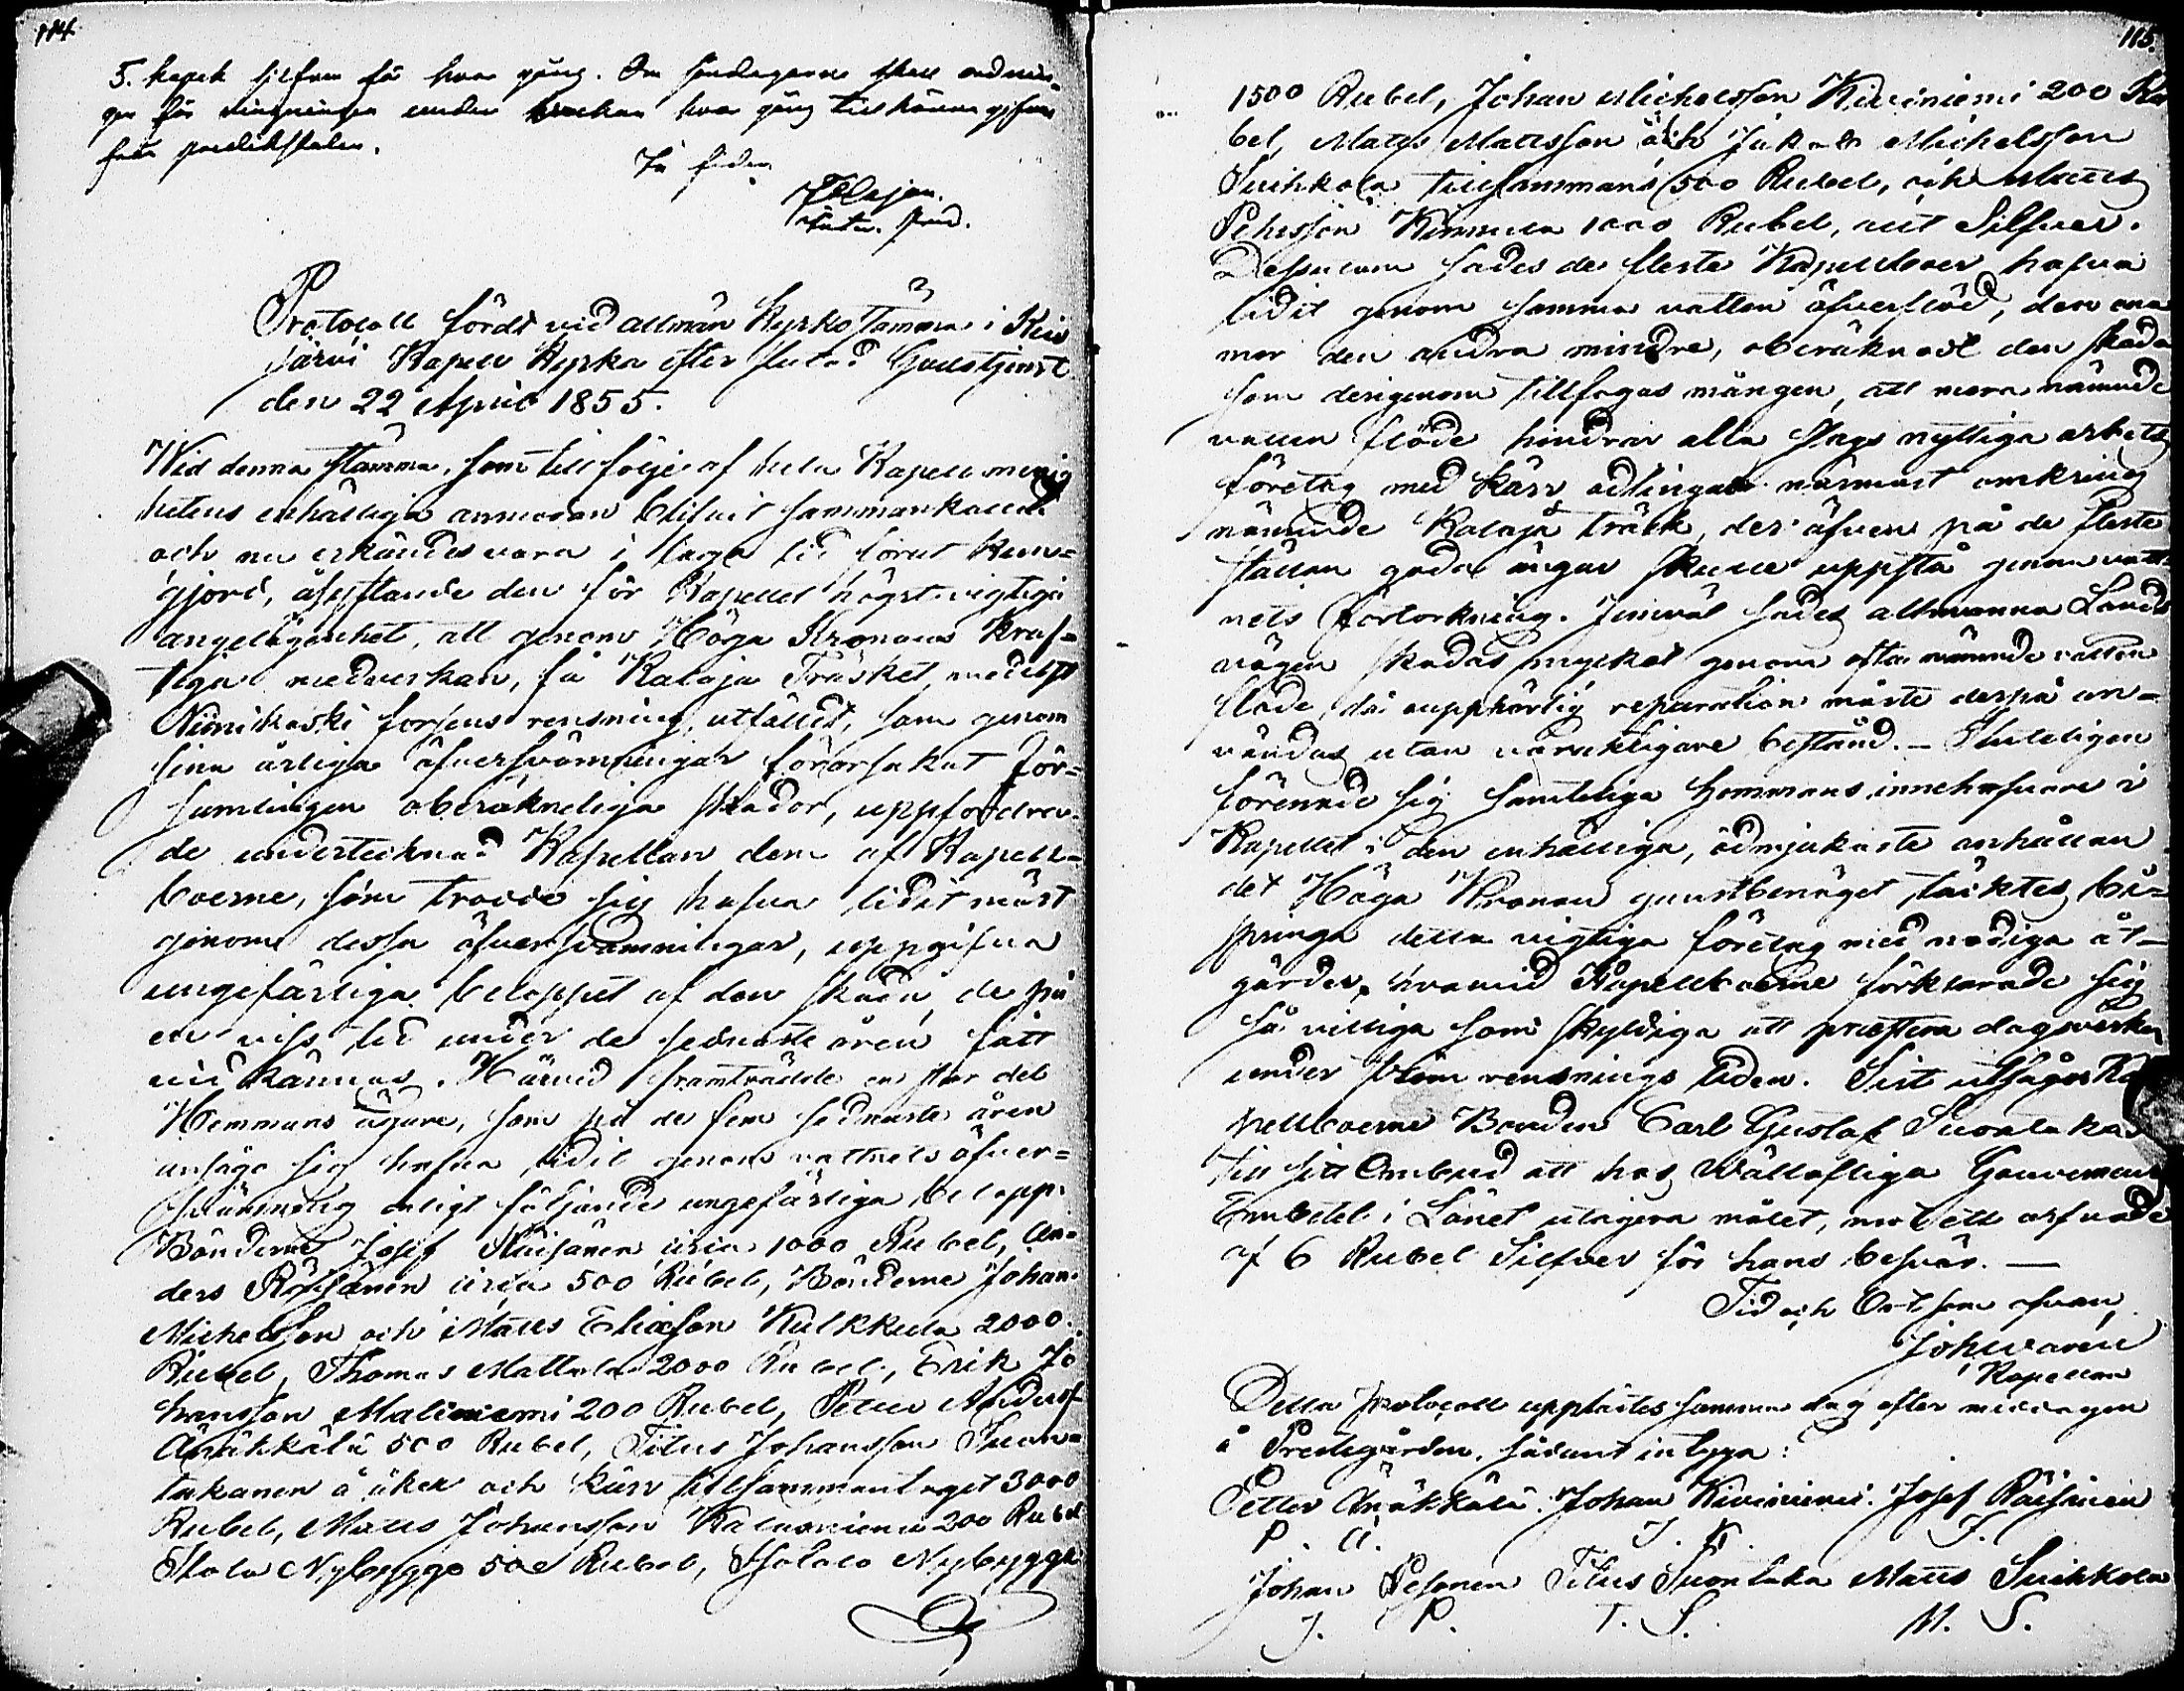 114.
5. kopek silfver för hvar gång. Om söndagarne skall ordnin-
gen för ringningen under veckan hvar gång tillkännagifvas
från predikstolen.
In fidem
Protocoll fördt vid allmän Kyrkostämma i Kivi
järvi Kapell Kyrka efter slutad Gudstjenst
den 22 April 1855.
Wid denna stämma, som till följe af hela Kapell menig
hetens enhälliga anmodan blifvit sammankallad
och nu erkändes vara i laga tid förut kun-
gjord, åsyftande den för Kapellet högst vigtiga
angelägenhet, att genom Höga Kronans kraf-
tiga medverkan, få Kalaja Träsket, medelst
Niinikoski forsens rensning, utfäldt, som genom
sina årliga öfversvämningar förorsakat för-
samlingen oberäkneliga skador, uppfordra-
de undertecknad Kapellan dem af Kapell-
boerne, som trodde sig hafva lidit mäst
genom dessa öfversvämningar, uppgifva
ungefärliga beloppet af den skada, de på
en viss tid under de sednaste åren fått
vidkännas. Härvid framträdde en stor del
Hemmans ägare, som på de fem sednaste åren
ansågo sig hafva lidit genom vattnets öfver-
svämning enligt följande ungefärliga belopp:
Bönderne Josef Räisänen circa 1000 Rubel, An-
ders Räisänen circa 500 Rubel, Bönderne Johan
Michelsson och Matts Eliasson Kulkkula 2000
Rubel, Thomas Mattala 2000 Rubel, Erik Jo
hansson Malieniemi 200 Rubel, Petter Anderss
Änäkkälä 500 Rubel, Titus Johansson Suon-
takanen å åker och kärr tillsammantaget 3000
Rubel, Matts Johansson 200 Rubel
Nybygge 500 Rubel, Nybygge
115.
1500 Rubel, Johan Michelsson Kiviniemi 200 Ru
bel, Matts Mattsson och Jakob Michelsson
Suihkola tillsammans 500 Rubel, och Matts
Pehrsson Kinnula 1000 Rubel, allt Silfver.
Dessutom sades de fleste Kapellboer hafva
lidit genom samma vatten öfverflöd, den ena
mer den andra mindre, oberäknadt den skada
som derigenom tillfogas mången, att mera nämnde
vatten flöde hindrar alla slags nyttiga arbets
företag med kärr odlingar närmast omkring
nämnde Kalaja träsk, der äfven på de fleste
ställen goda ängar skulle uppstå genom vatt-
nets förtorkning. Jemväl sades allmänna Lands
vägen skadas mycket genom ofta nämnde vatten
flöde, då oupphörlig reparation måste derpå an-
vändas utan varaktigare bestånd. — Slutligen
förenade sig samtelige Hemmans innehafvare i
Kapellet i den enhälliga, ödmjukaste anhållan
det Höga Kronan gunstbenäget täcktes bi-
springa detta vigtiga företag med nödiga åt-
gärder, hvarvid Kapellboerne förklarade sig
så villiga som skyldiga att præstera dagsverken
under ström rensnings tiden. Sist utsågo Ka
pellboerne Bonden Carl Gustaf Suontaka
till sitt Ombud att hos Wällofliga Gouvernörs
Embetet i Länet utagera målet, mot ett arfvode
af 6 Rubel Silfver för hans besvär. —
Tid och Ort som ofvan,
Joh
Kapellan
Detta protocoll upplästes samma dag efter middagen
å Prestgården, sådant intyga:
Petter Änäkkälä. Johan Kiviniemi. Josef Räisänen
P. Ä. J. K. J.
Johan Pesonen Titus Suontaka Matts Suihkola
J. P. T. S. M. S.